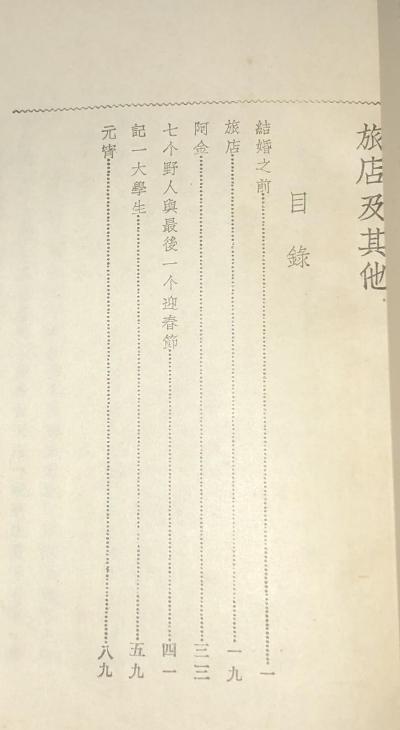 旅店及其他
目錄
結婚之前 一
旅店 一九
阿金 三三
七个野人與最後一个迎春節 四一
記一大學生 五九
元宵 八九